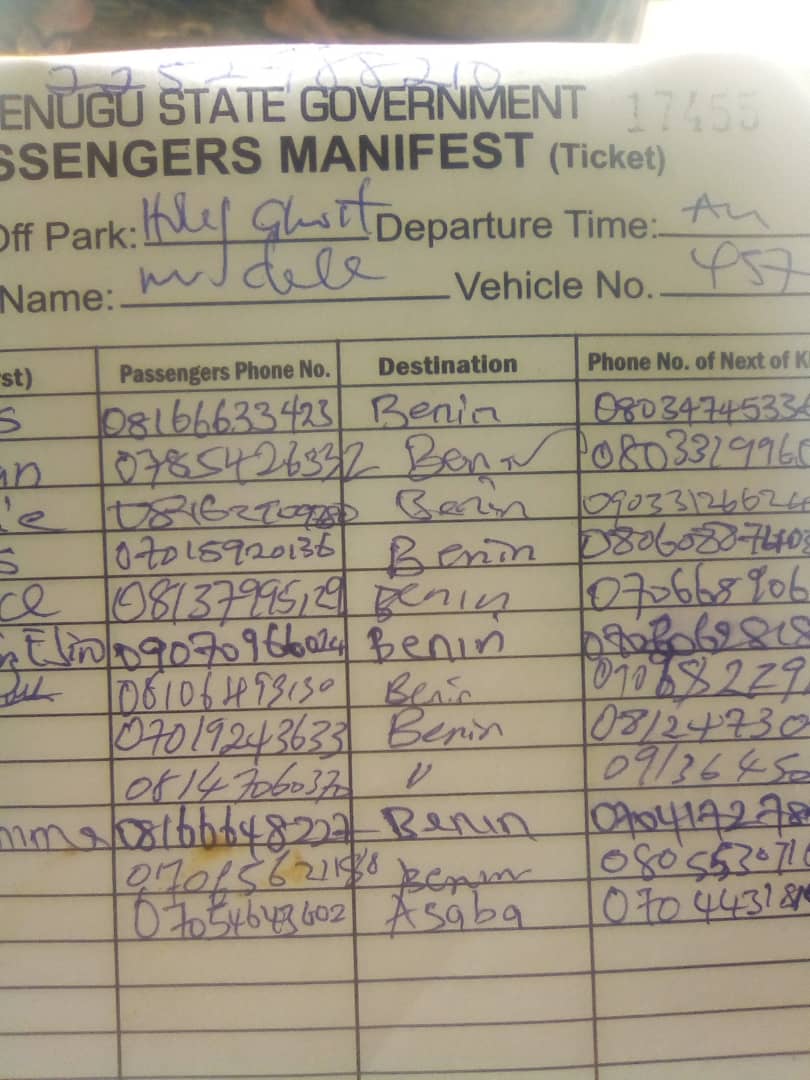 2252188210
ENUGU STATE GOVERNMENT 17455
SSENGERS MANIFEST (Ticket)
Off Park: Holy Ghost Departure Time: Am
Name: mr dele Vehicle No. 457
rst) Passengers Phone No. Destination Phone No. of Next of K
s 08166633423 Benin 0803474533
an 0785426332 Benin 080332996
e Benin 0903312662
s 07015920136 Benin
ce 08137995129 Benin 070668906
09070966024 Benin
08106493130 Benin
07019243633 Benin 08124730
08147060370 " 09136450
mma 08166648227 Benin 070417278
Benin 080553071
07054643602 Asaba 070443181